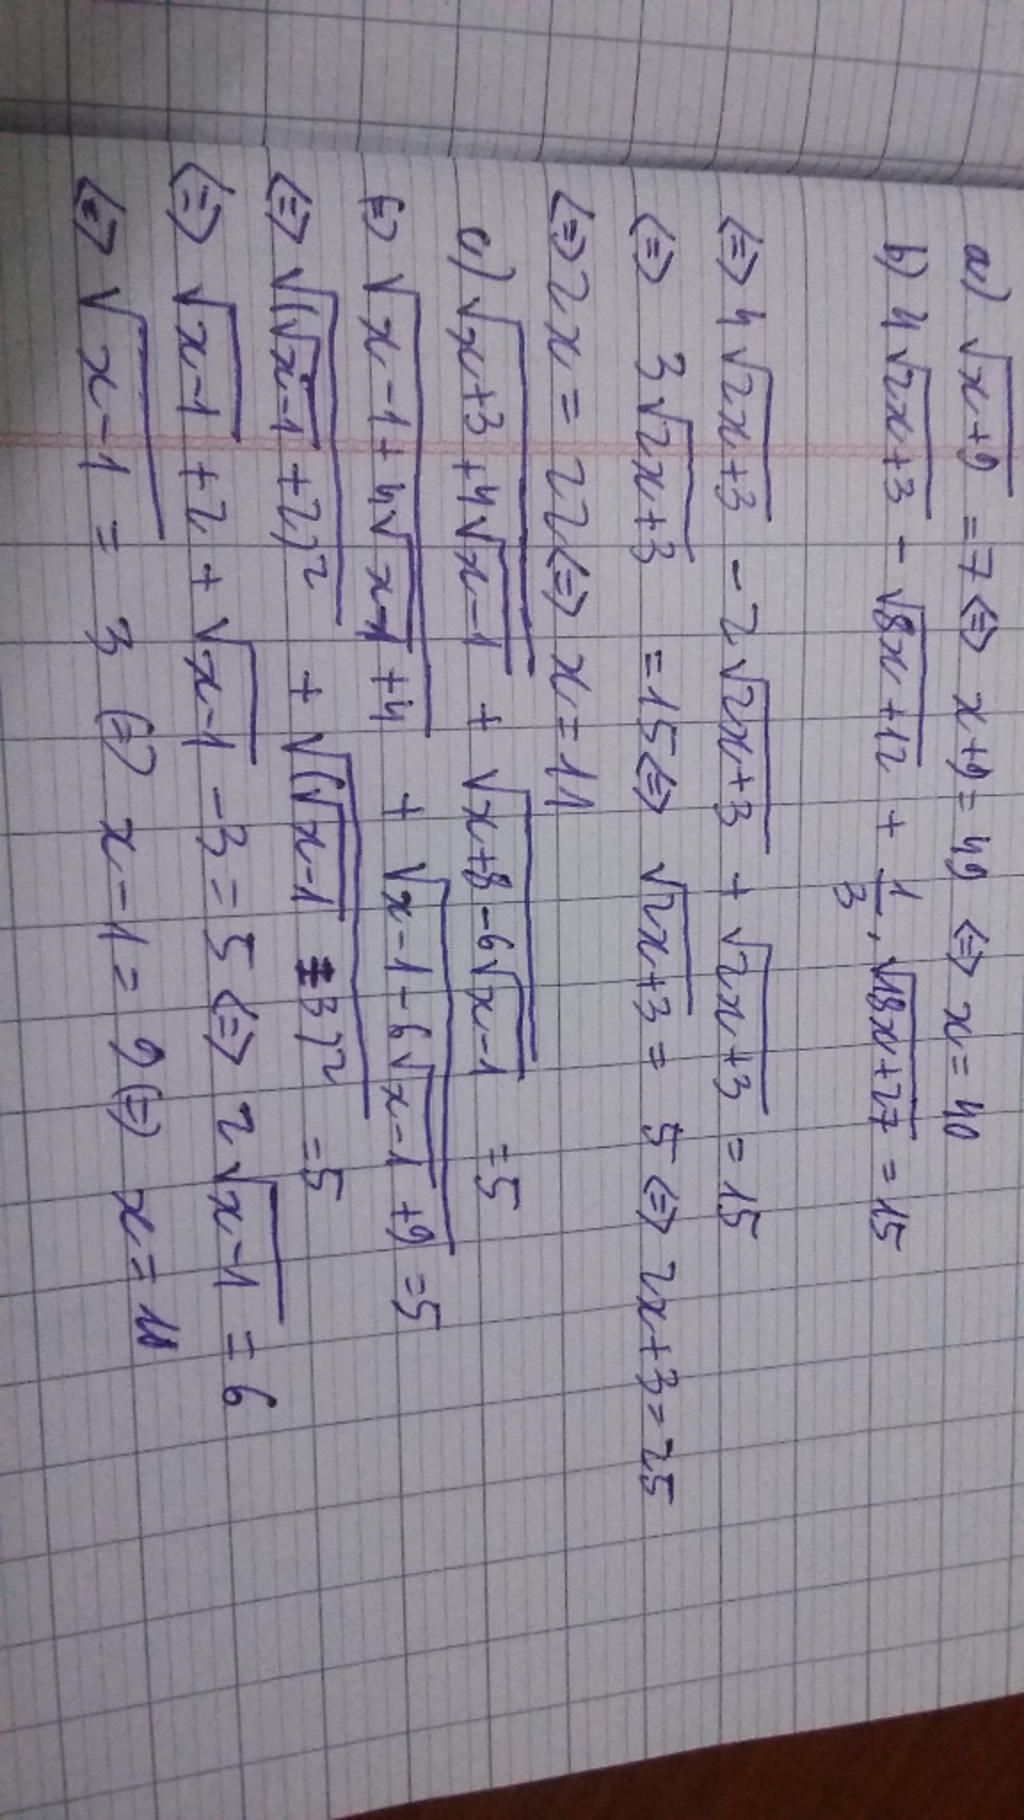 a) √(x+9) = 7 (=) x+9 = 49 (=) x = 40
b) 4√(2x+3) - √(8x+12) + 1/3 . √(18x+27) = 15
(=) 4√(2x+3) - 2√(2x+3) + √(2x+3) = 15
(=) 3√(2x+3) = 15 (=) √(2x+3) = 5 (=) 2x+3 = 25
(=) 2x = 22 (=) x = 11
c) √(x+3+4√(x-1)) + √(x+8-6√(x-1)) = 5
(=) √(x-1+4√(x-1)+4) + √(x-1-6√(x-1)+9) = 5
(=) √((√(x-1)+2)²) + √((√(x-1)-3)²) = 5
(=) √(x-1) + 2 + √(x-1) - 3 = 5 (=) 2√(x-1) = 6
(=) √(x-1) = 3 (=) x-1 = 9 (=) x = 10